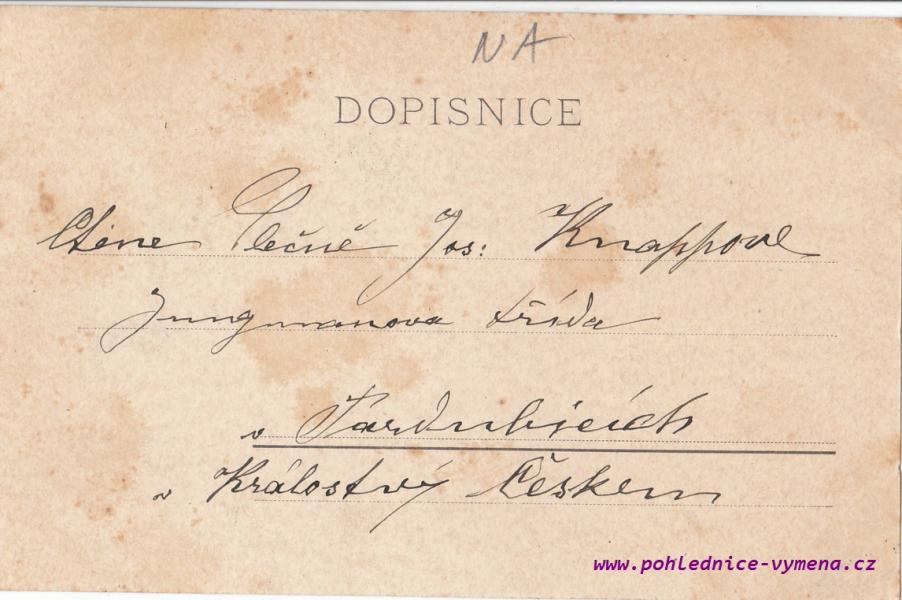 NA
DOPISNICE
Ctěné Slečně Jos: Knappové
Jungmanova třída
v Pardubicích
v Králoství Českém
www.pohlednice-vymena.cz